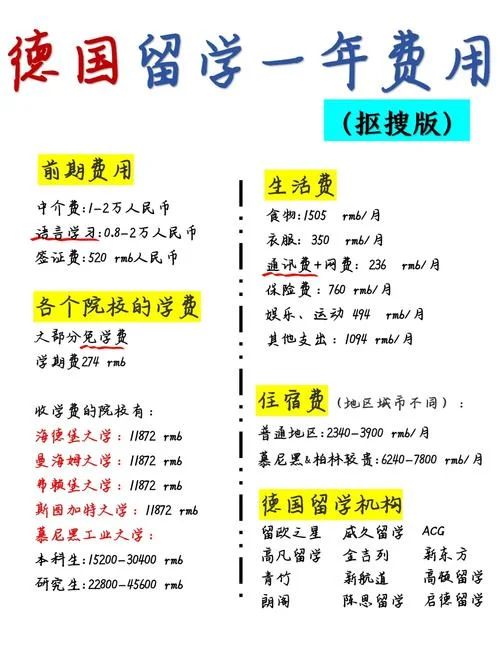 德国留学一年费用
(抠搜版)
前期费用
中介费:1-2万人民币
语言学习:0.8-2万人民币
签证费:520 rmb人民币
各个院校的学费
大部分免学费
学期费274 rmb
收学费的院校有:
海德堡大学:11872 rmb
曼海姆大学:11872 rmb
弗赖堡大学:11872 rmb
斯图加特大学:11872 rmb
慕尼黑工业大学:
本科生:15200-30400 rmb
研究生:22800-45600 rmb
生活费
食物:1505 rmb/月
衣服:350 rmb/月
通讯费+网费:236 rmb/月
保险费:760 rmb/月
娱乐、运动 494 rmb/月
其他支出:1094 rmb/月
住宿费(地区城市不同):
普通地区:2340-3900 rmb/月
慕尼黑&柏林较贵:6240-7800 rmb/月
德国留学机构
留欧之星 威久留学 ACG
高凡留学 金吉列 新东方
青竹 新航道 高顿留学
朗阁 陈思留学 启德留学